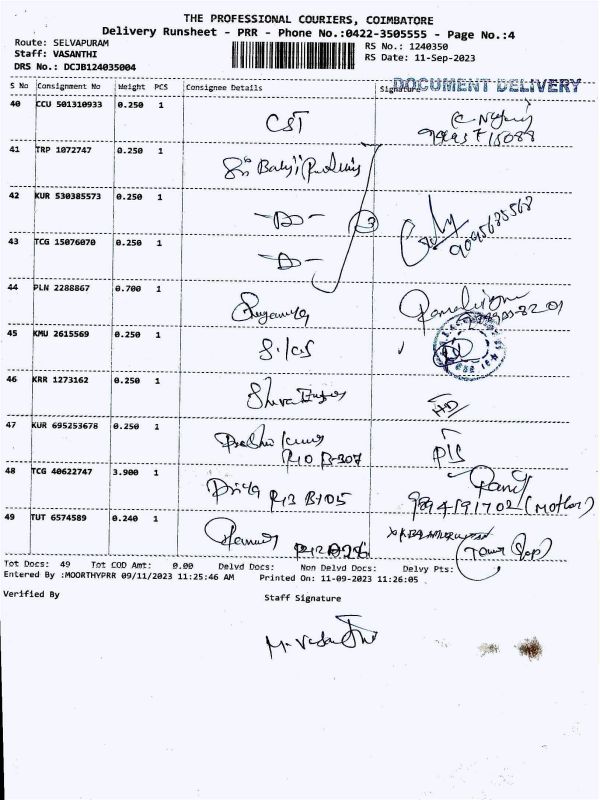 THE PROFESSIONAL COURIERS, COIMBATORE
Delivery Runsheet - PRR - Phone No.:0422-3505555 - Page No.:4
Route: SELVAPURAM
Staff: VASANTHI
DRS No.: DCJB124035004
RS No.: 1240350
RS Date: 11-Sep-2023
DOCUMENT DELIVERY
S No Consignment No Weight PCS Consignee Details Signature
40 CCU 501310933 0.250 1 CST
41 TRP 1072747 0.250 1 Sri Balaji
42 KUR 530385573 0.250 1 -Do- 3 9095685568
43 TCG 15076070 0.250 1 -Do-
44 PLN 2288867 0.700 1
45 KMU 2615569 0.250 1
46 KRR 1273162 0.250 1 Shiva
47 KUR 695253678 0.250 1 R10 B-307
48 TCG 40622747 3.900 1 Priya R13 B105 9894591702 (Mother)
49 TUT 6574589 0.240 1
Tot Docs: 49 Tot COD Amt: 0.00 Delvd Docs: Non Delvd Docs: Delvy Pts:
Entered By :MOORTHYPRR 09/11/2023 11:25:46 AM Printed On: 11-09-2023 11:26:05
Verified By Staff Signature